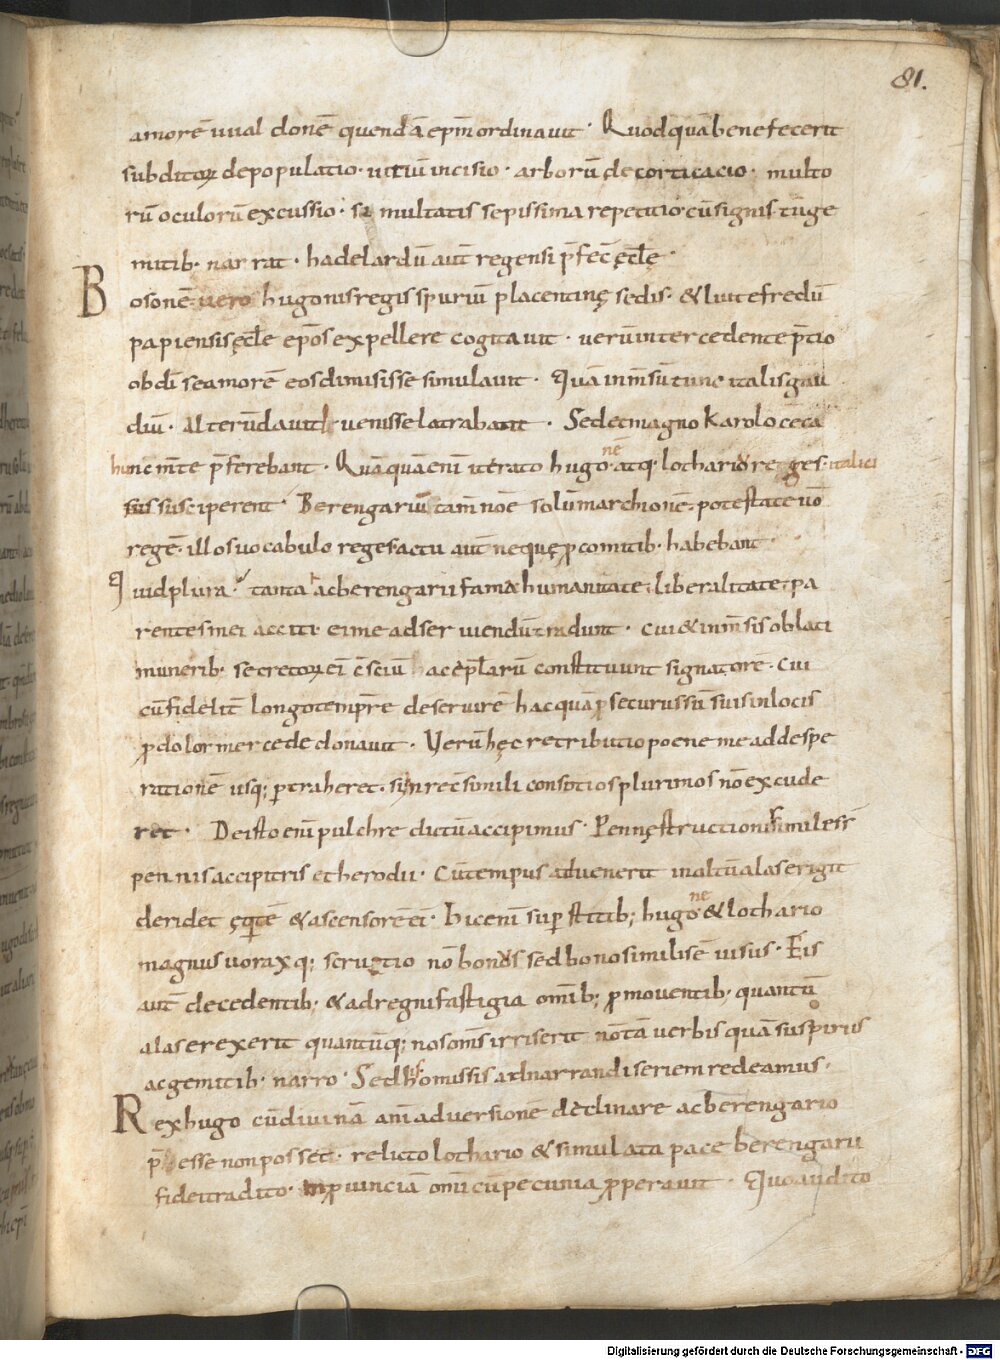 81.
amorē uual donē quendā ep̄m ordinauit · Quod quā bene fecerit
subditoꝝ depopulatio · uitiū incisio · arborū decorticacio · multo
rū oculorū excussio · simultatis sepissima repetitio cū signis t̄ uge
mitib· narrat · hadelardū aut̄ regensi p̄fec̄ ęccłe ·
Bosonē uero hugonis regis spuriū placentinę sedis · & liutefredū
papiensis ęccłe ep̄os expellere cogitauit · uerū intercedente p̄tio
ob dī se amorē eos dimisisse simulauit · Quā inm̄sū tunc italis gau
diū · alterū dauid uenisse latrabant · Sed et magno karolo cęca
hunc m̄te p̄ferebant · Quāquā enī iterato hugonē atq· lothariū reges · italici
susciperent · Berengariū tam̄ nōē solū marchionē · potestate uō
regē · illos uocabulo reges actu aut̄ neque ꝓ comitib· habebant ·
Quid plura tanta ac berengarii fama humanitate · liberalitate · pa
rentes mei acciti · ei me ad seruiendū tradunt · Cui & inm̄sis oblatis
munerib· secretoꝝ eī c̄sciū ac ep̄larū constituunt signatorē · Cui
cū fidelit̄ longo temp̄re deseruirē hac quā ꝓsecuturus sū suis in locis
ꝓ dolor mercede donauit · Verū hęc retributio poene me ad despe
rationē usq; ꝑtraheret · si n̄ rec̄ simili consotios plurimos nō excude
ret · De isto enī pulchre dictū accipimus · Pennę structionis similes s̄
pennis accipitris et herodii · Cū tempus aduenerit in altū alas erigit
deridet ęq̄tē & ascensorē eī · hic enī superstitib; hugone & lothario
magnus uorax q; strutio nō bonus sed bono similis ē uisus · Eis
aut̄ decedentib· & ad regni fastigia omīb; ꝓmouentib· quantū
alas erexerit quantūq; nos oms̄ irriserit nō tā uerbis quā suspiriis
ac gemitib· narro · Sed his omissis ad narrandi seriem redeamus ·
Rex hugo cū diuinā animaduersionē declinare ac berengario
p̄esse non posset · relicto lothario & simulata pace berengarii
fidei tradito · in ꝓuinciā omī cū pecunia ꝓperauit · Quo audito
Digitalisierung gefördert durch die Deutsche Forschungsgemeinschaft - DFG